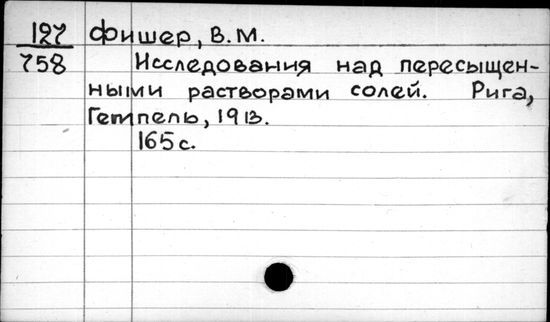 127 Фишер, В.М.
758 Исследования над пересыщен-
ными растворами солей. Рига,
Гемпель, 1913.
165 с.